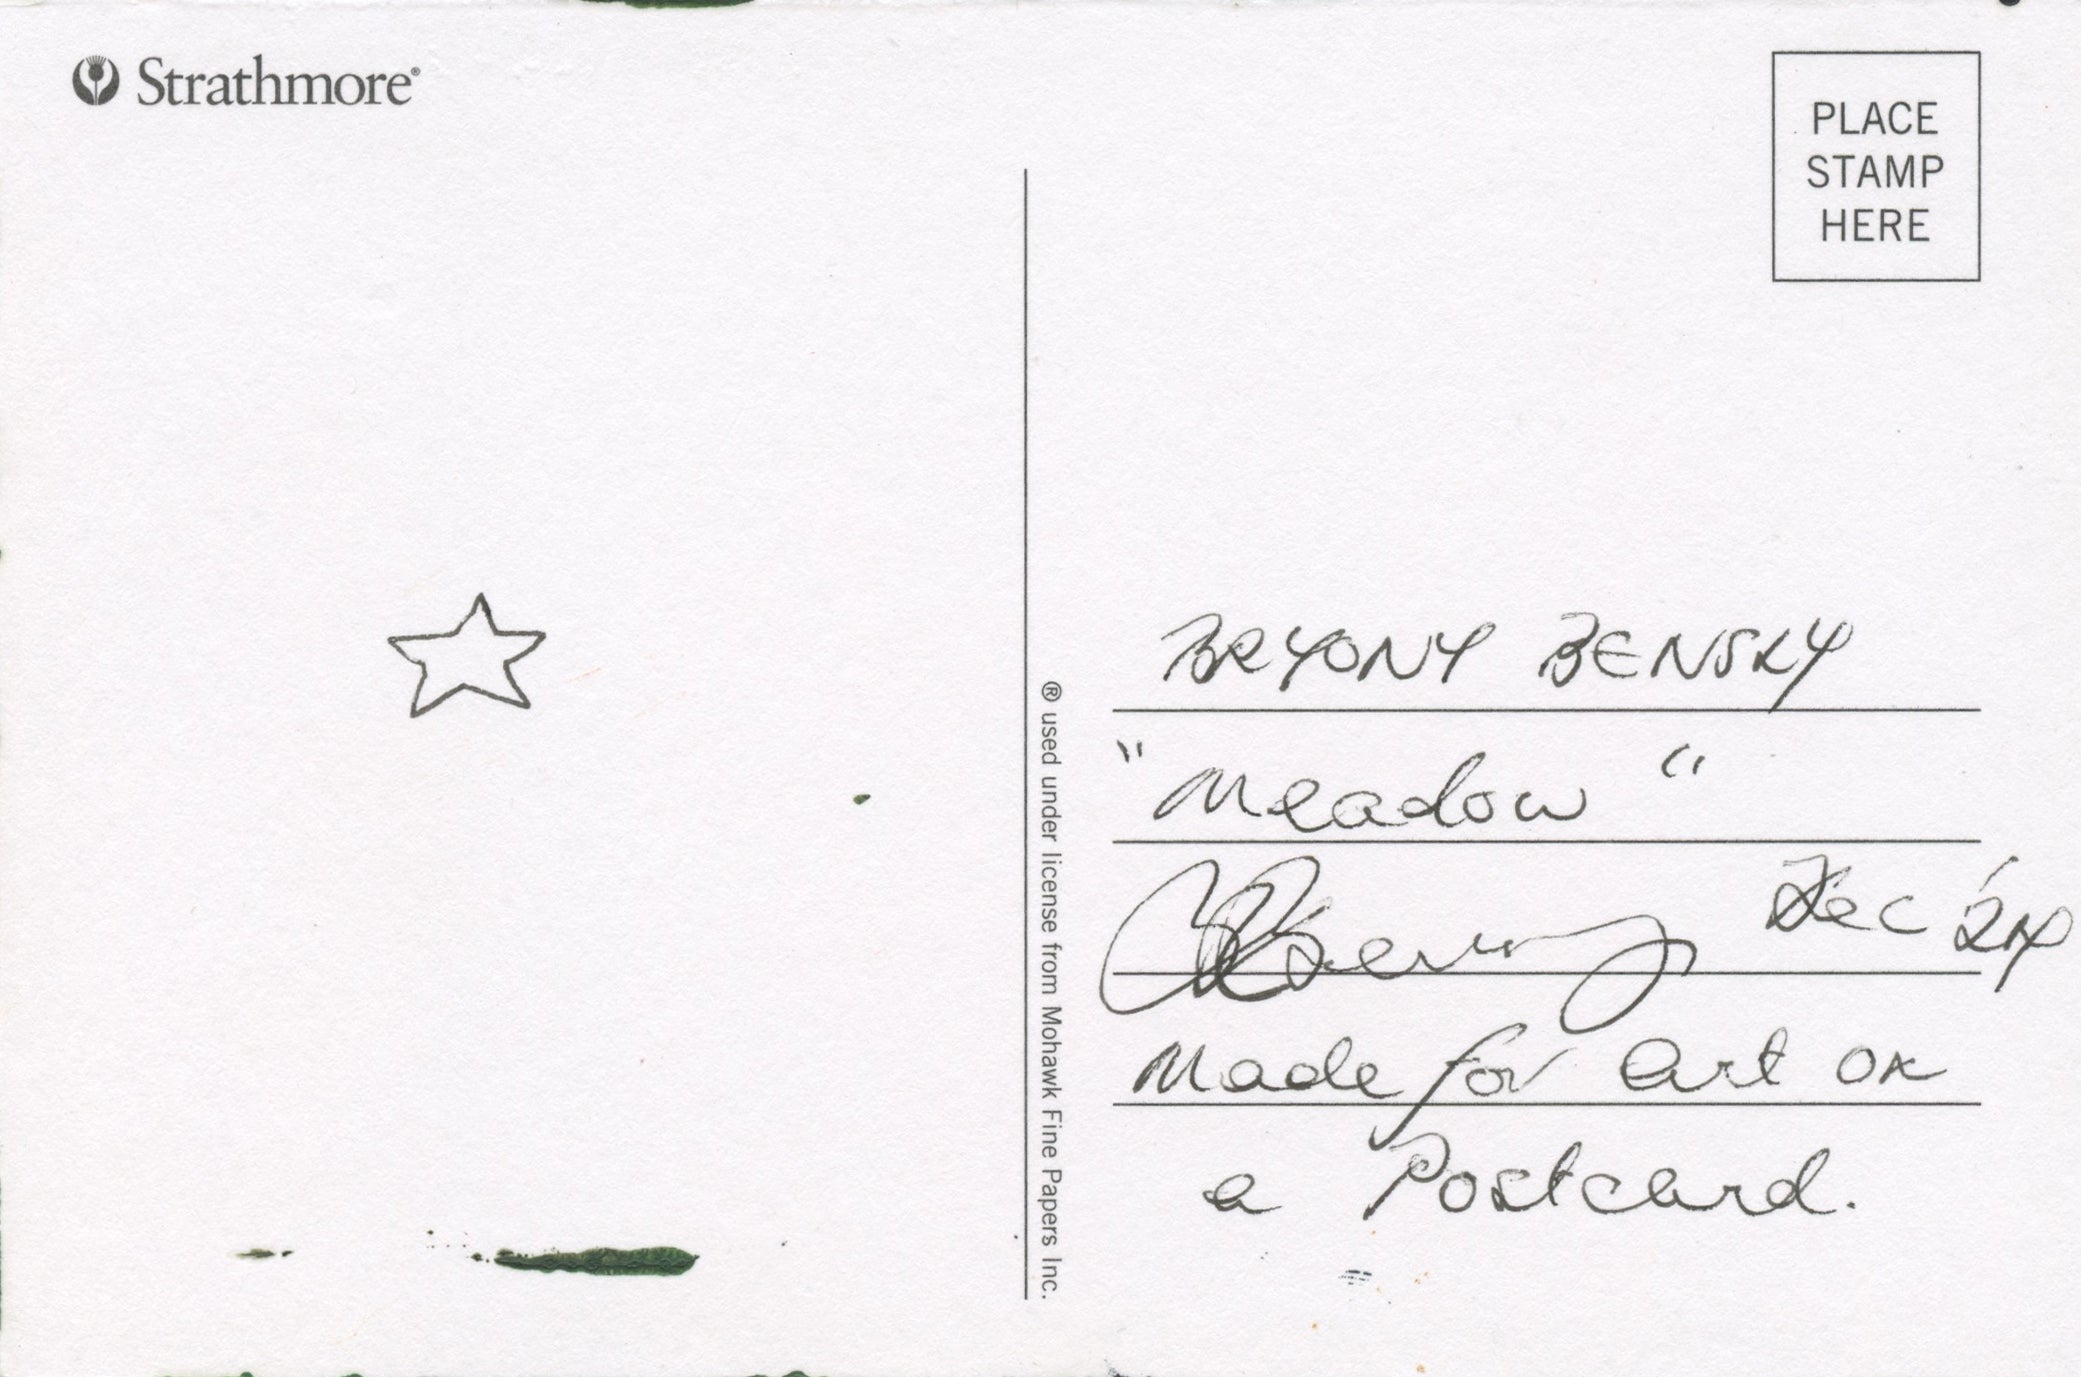 Strathmore®
PLACE
STAMP
HERE
® used under license from Mohawk Fine Papers Inc.
BRYONY BENSKY
"Meadow"
Dec '24
Made for art on
a Postcard.